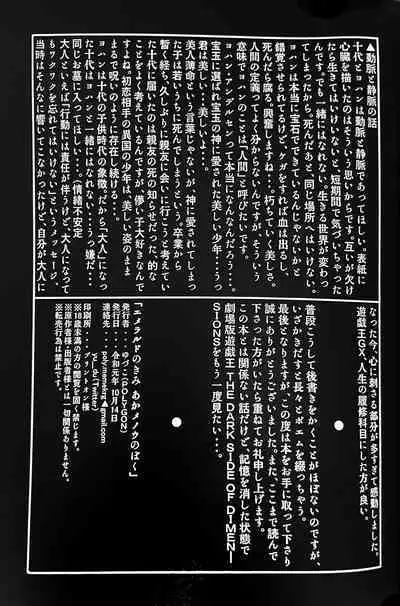 ▲動脈と静脈の話
十代とヨハンは動脈と静脈であってほしい。表紙に
心臓を描いたのはそういう思いからです。互いが欠け
たら生きてはいけないと、短期間で気づいちゃった
んです。でも一緒にはなれないと、生きる世界が変わっ
てしまったから。死んだって、同じ場所へはいけない
ヨハンて本当に宝石でできているんじゃないかと
錯覚させられるけど、ケガをすれば血は出るし、
死んだら腐る。興奮しますね…。朽ちていく美しさ。
人間の定義ってよく分からないんですが、そういう
意味でヨハンのことは「人間」と呼びたいです。
ヨハン・アンデルセンって本当になんなんだろう…。
宝玉に選ばれ宝玉の神に愛された美しい少年…うっ…
君は美しい…美しいよ…。
美人薄命という言葉じゃないが、神に愛されてしまっ
た子は若いうちに死んでしまうという。卒業から
暫く経ち、久しぶりに親友に会いに行こうと考えてい
た十代に届いたのは親友の死の知らせだった。的な
ことをよく考えてるんですが、儚い子大好きなんで
すよね…初恋相手の異国の少年は、美しい姿のまま
まるで呪いのように存在し続ける
ヨハンは十代の子供時代の象徴。だから「大人」になっ
た十代はヨハンと一緒にはなれない…うっ嫌だ…
同じお墓に入ってほしい…。(情緒不安定
大人といえば「行動には責任が伴うけど、大人になって
もワクワクを忘れてはいけない」というメッセージ、
当時はそんなに響いてこなかったけど、自分が大人に
なった今、心に刺さる部分が多すぎて感動しました。
遊戯王GX、人生の履修科目にした方が良い。
普段こうして後書きをかくことがほぼないのですが、
いざかきだすと長々とポエムを綴っちゃう。
最後となりますが、この度は本をお手に取って下さり
誠にありがとうございました。また、ここまで読んで
下さった方がいたら重ねてお礼申し上げます。
この本とは関係ない話だけど、記憶を消した状態で
劇場版遊戯王「THE DARK SIDE OF DIMEN-
SIONS」をもう一度見たい…。
「エメラルドのきみ あかメノウのぼく」
発行者・・・ゆづこ(POLYGON)
発行日・・・令和元年10月14日
連絡先・・・polymanekins▲gmail.com
印刷所・・・プリントオン様
※18歳未満の方の閲覧を固く禁じます。
※原作者様・出版者様とは一切関係ありません。
※転売行為は禁止です。